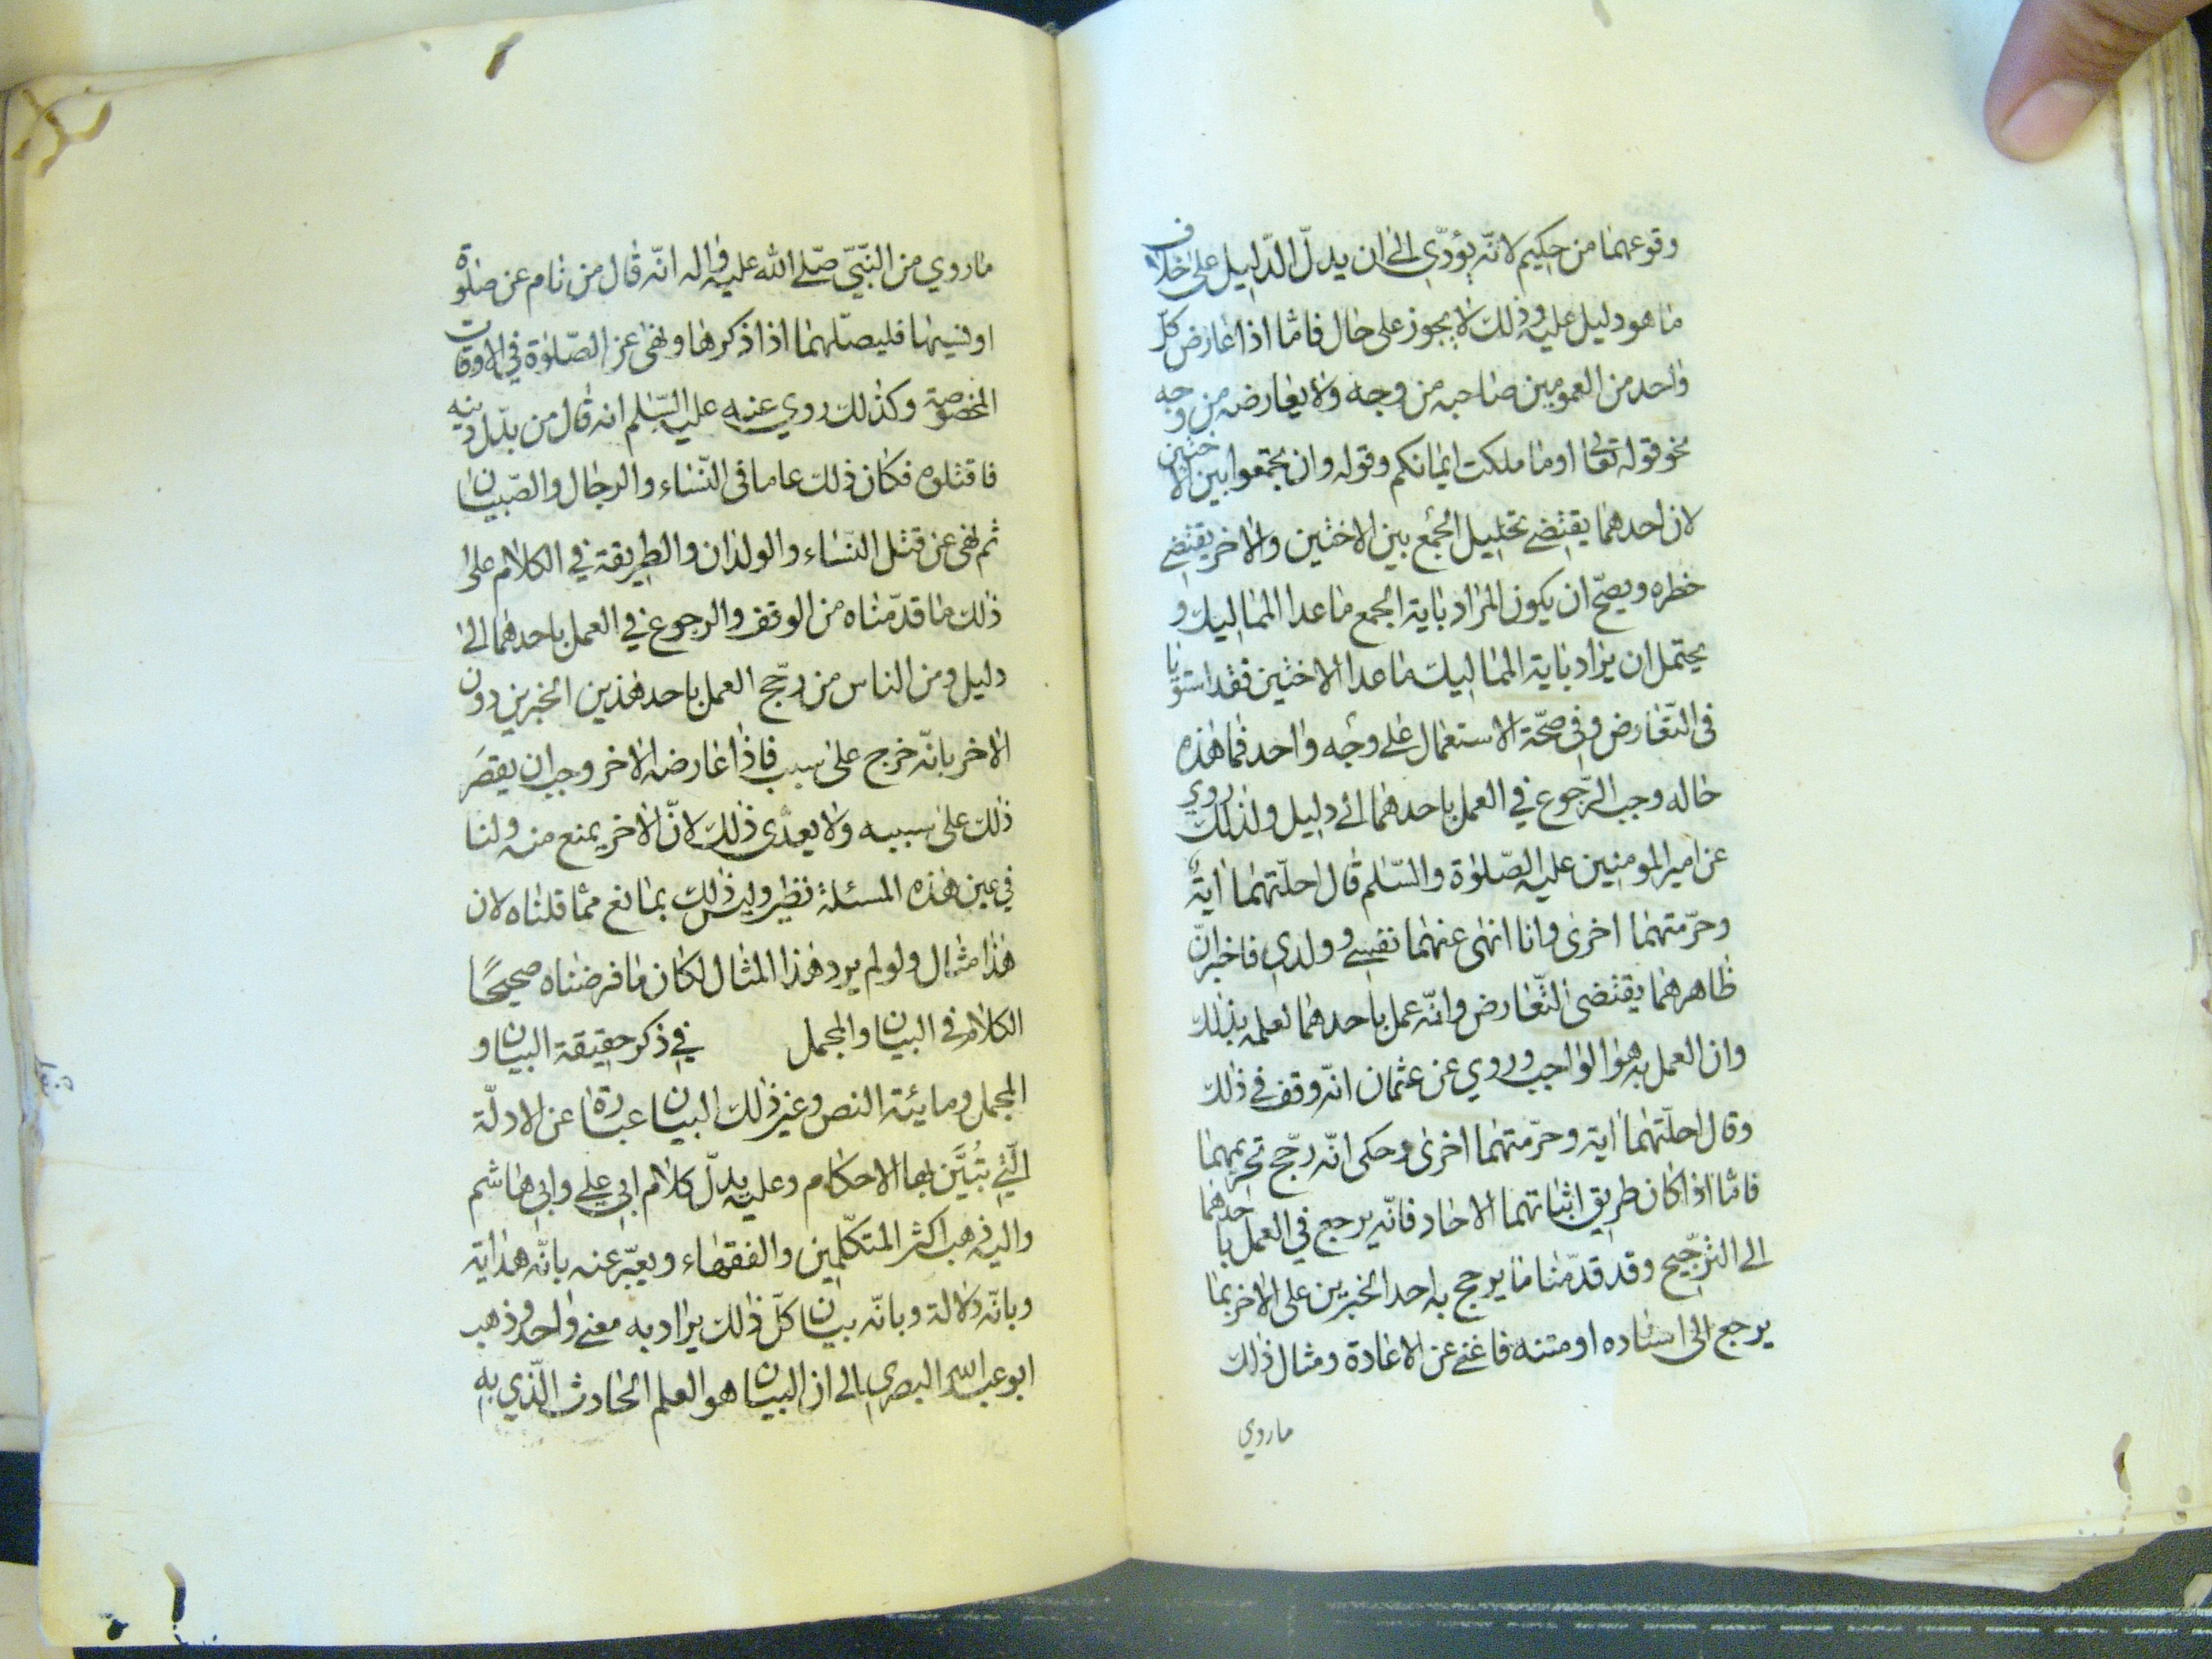 وقوعهما من حكيم لانّه يؤدّي الى ان يدلّ الدّليل على خلاف
ما هو دليل عليه وذلك لا يجوز على حال فامّا اذا عارض كلّ
واحد من العمومين صاحبه من وجه ولا يعارضه من وجه
نحو قوله تعالى او ما ملكت ايمانكم وقوله وان تجمعوا بين الاختين
لان احدهما يقتضي تحليل الجمع بين الاختين والاخر يقتضي
خطره ويصحّ ان يكون المراد باية الجمع ما عدا المماليك و
يحتمل ان يراد باية المماليك ما عدا الاختين فقد استويا
في التّعارض وفي صحّة الاستعمال على وجه واحد فما هذه
حاله وجب الرّجوع في العمل باحدهما الى دليل ولذلك روي
عن امير المومنين عليه الصّلوة والسّلم قال احلّتهما اية
وحرّمتهما اخرى وانا انهى عنهما نفسي وولدي فاخبر انّ
ظاهرهما يقتضى التّعارض وانّه عمل باحدهما لعلمه بذلك
وان العمل به هو الواجب وروي عن عثمان انّه وقف في ذلك
وقال احلّتهما اية وحرّمتهما اخرى وحكى انّه رجّح تحريمهما
فامّا اذا كان طريق اثباتهما الاحاد فانّه يرجع في العمل باحدهما
الى التّرجّيح وقد قدّمنا ما يرجح به احد الخبرين على الاخر بما
يرجع الى اسناده او متنه فاغنى عن الاعادة ومثال ذلك
ماروي
ماروي من النّبيّ صلّى الله عليه واله انّه قال من نام عن صلوة
او نسيها فليصلّهما اذا ذكرها ونهى عن الصّلوة في الاوقات
المخصوصة وكذلك روي عنه عليه السّلم انه قال من بدّل دينه
فاقتلوه فكان ذلك عاما في النّساء والرجال والصّبيان
ثم نهى عن قتل النّساء والولدان والطريقة في الكلام على
ذلك ما قدّمناه من الوقف والرجوع في العمل باحدهما الى
دليل ومن الناس من رجّح العمل باحد هذين الخبرين دون
الاخر بانّه خرج على سبب فاذا عارضه الاخر وجب ان يقصر
ذلك على سببه ولا يعدّى ذلك لانّ الاخر يمنع منه ولنا
في عين هذه المسئلة نظير وليس ذلك بمانع ممّا قلناه لان
هذا مثال ولو لم يرد هذا المثال لكان ما فرضناه صحيحًا
الكلام في البيان والمجمل في ذكر حقيقة البيان و
المجمل ومايئة النص وغير ذلك البيان عبارة عن الادلّة
الّتي تُبيَّن بها الاحكام وعليه يدلّ كلام ابي علي وابي هاشم
واليه ذهب اكثر المتكلّمين والفقهاء ويعبّر عنه بانّه هداية
وبانّه دلالة وبانّه بيان كلّ ذلك يراد به معنى واحد وذهب
ابو عبد الله البصري الى ان البيان هو العلم الحادث الّذي به